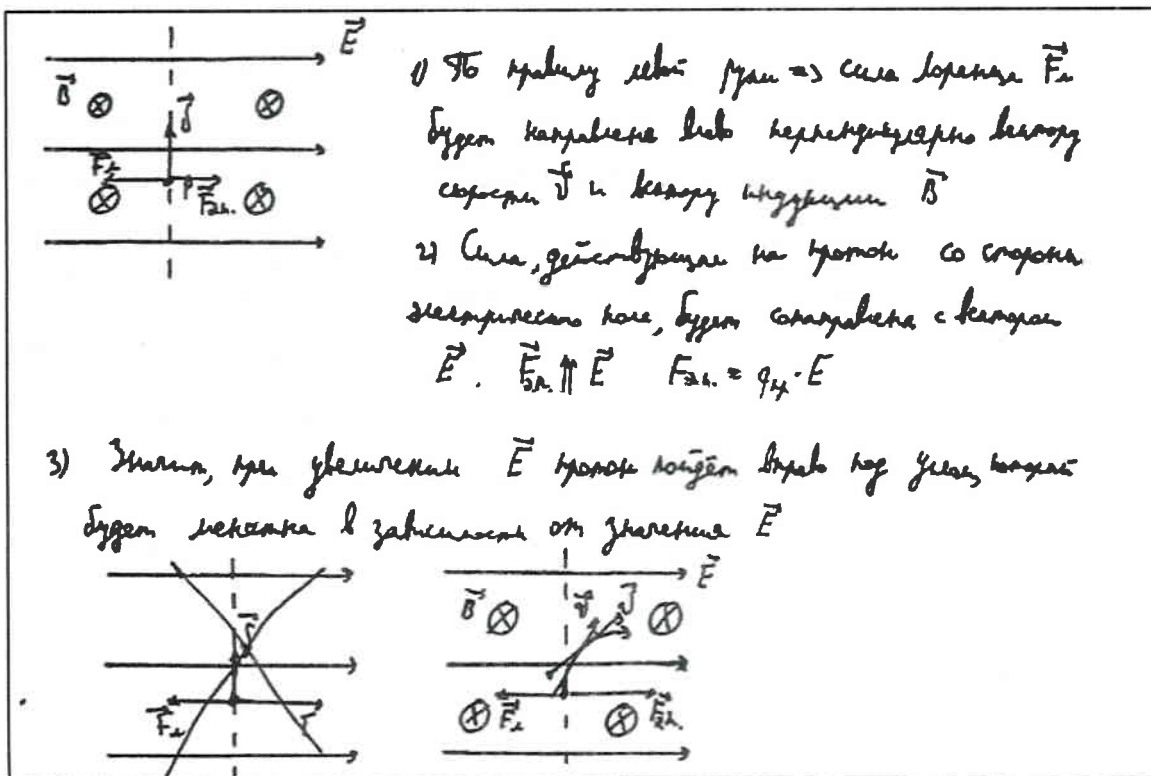 E⃗
B⃗ v⃗
F⃗л p F⃗эл.
1) По правилу левой руки => сила Лоренца F⃗л
будет направлена влево перпендикулярно вектору
скорости v⃗ и вектору индукции B⃗
2) Сила, действующая на протон со стороны
электрического поле, будет сонаправлена с вектором
E⃗. F⃗эл. ⇈ E⃗ Fэл. = q · E
3) Значит, при увеличении E⃗ протон пойдёт вправо под углом, который
будет менятся в зависимости от значения E⃗
E⃗
B⃗ v⃗
F⃗л F⃗л F⃗эл.